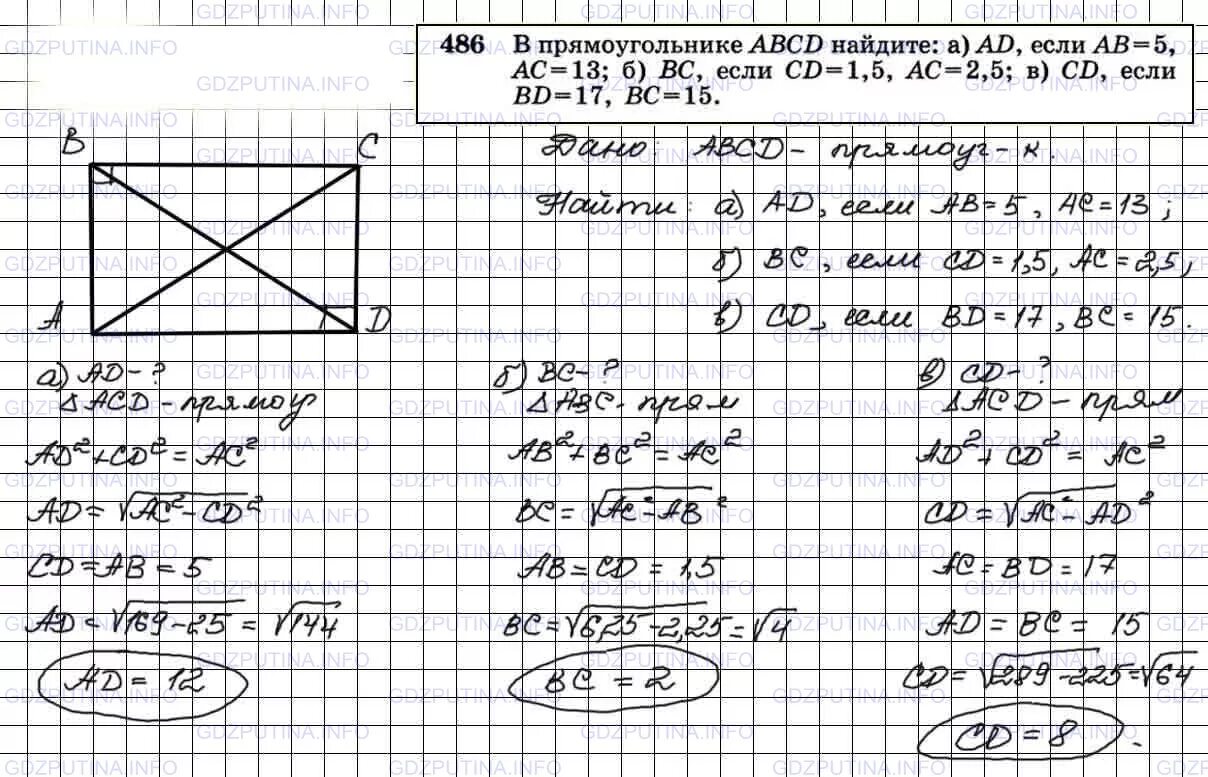 486 В прямоугольнике ABCD найдите: а) AD, если AB=5,
AC=13; б) BC, если CD=1,5, AC=2,5; в) CD, если
BD=17, BC=15.
B
C
A
D
Дано: ABCD - прямоуг-к.
Найти: а) AD, если AB=5, AC=13;
б) BC, если CD=1,5, AC=2,5,
в) CD, если BD=17, BC=15.
а) AD-?
△ACD-прямоуг
AD²+CD²=AC²
AD=√AC²-CD²
CD=AB=5
AD=√169-25=√144
AD=12
б) BC-?
△ABC-прям
AB²+BC²=AC²
BC=√AC²-AB²
AB=CD=1,5
BC=√6,25-2,25=√4
BC=2
в) CD-?
△ACD-прям
AD²+CD²=AC²
CD=√AC²-AD²
AC=BD=17
AD=BC=15
CD=√289-225=√64
CD=8.
GDZPUTINA.INFO